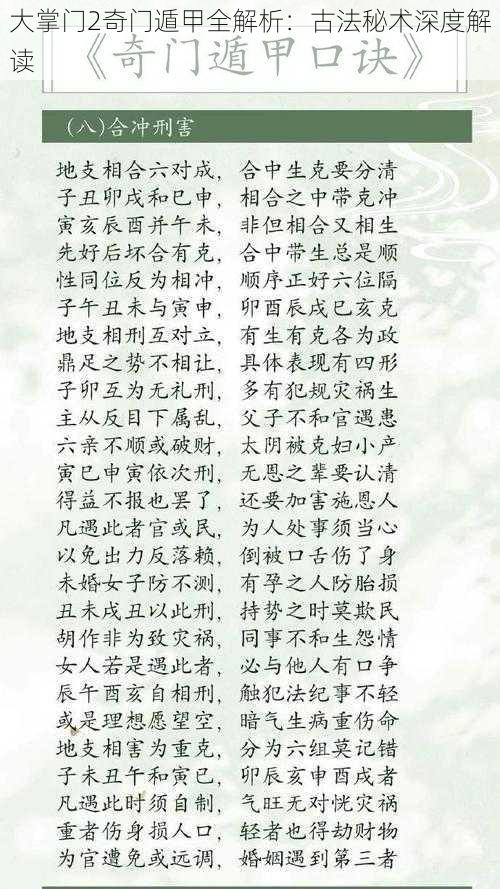 大掌门2奇门遁甲全解析：古法秘术深度解
读
《奇门遁甲口诀》
(八)合冲刑害
地支相合六对成，合中生克要分清
子丑卯戌和巳申，相合之中带克冲
寅亥辰酉并午未，非但相合又相生
先好后坏合有克，合中带生总是顺
性同位反为相冲，顺序正好六位隔
子午丑未与寅申，卯酉辰戌巳亥克
地支相刑互对立，有生有克各为政
鼎足之势不相让，具体表现有四形
子卯互为无礼刑，多有犯规灾祸生
主从反目下属乱，父子不和官遇患
六亲不顺或破财，太阴被克妇小产
寅巳申寅依次刑，无恩之辈要认清
得益不报也罢了，还要加害施恩人
凡遇此者官或民，为人处事须当心
以免出力反落赖，倒被口舌伤了身
未婚女子防不测，有孕之人防胎损
丑未戌丑以此刑，持势之时莫欺民
胡作非为致灾祸，同事不和生怨情
女人若是遇此者，必与他人有口争
辰午酉亥自相刑，触犯法纪事不轻
或是理想愿望空，暗气生病重伤命
地支相害为重克，分为六组莫记错
子未丑午和寅巳，卯辰亥申酉戌者
凡遇此时须自制，气旺无对恍灾祸
重者伤身损人口，轻者也得劫财物
为官遭免或远调，婚姻遇到第三者